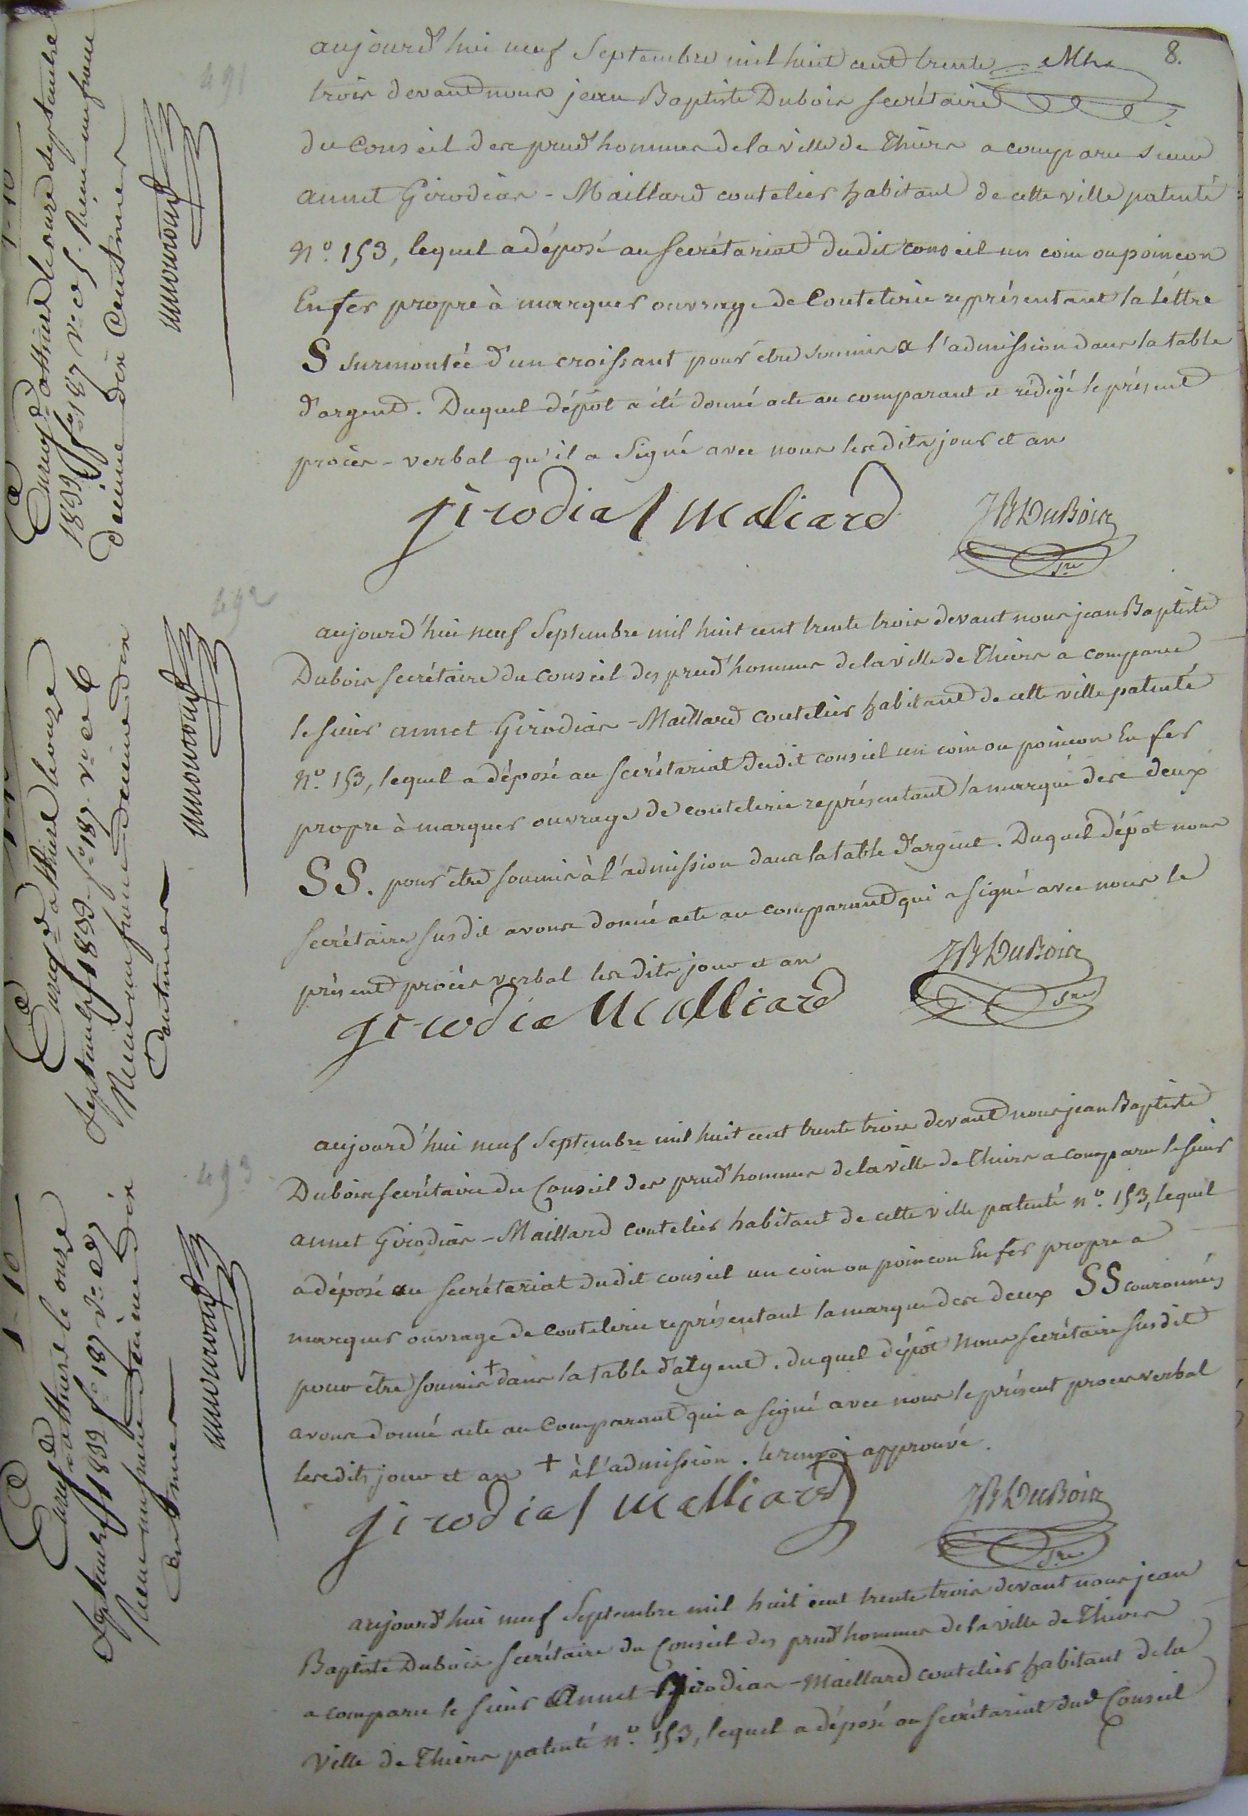 8.
491
aujourd'hui neuf Septembre mil huit cent trente
trois devant nous jean Baptiste Dubois secrétaire
du Conseil des prud'hommes de la ville de Thiers a comparu sieur
annet Girodias - Maillard coutelier habitant de cette ville patenté
N.º 153, lequel a déposé au secrétariat dudit conseil un coin ou poincon
En fer propre à marquer ouvrage de Coutelerie représentant la Léttre
S surmontée d'un croissant pour être soumis a l'admission dans la table
d'argent. Duquel dépôt a été donné acte au comparant et rédigé le présent
procès-verbal qu'il a Signé avec nous lesdits jour et an
girodias maliard
JB DuBois
sre
Enreg.d à thiers le onze septembre
1833 fº 187 vº c 5. Reçu un franc
décime dix centimes
492
aujourd'hui neuf Septembre mil huit cent trente trois devant nous jean Baptiste
Dubois secrétaire du conseil des prud'hommes de la ville de Thiers a comparu
le sieur annet Girodias - Maillard coutelier habitant de cette ville patenté
Nº. 153, lequel a déposé au secrétariat dudit conseil un coin ou poincon En fer
propre à marquer ouvrage de coutelerie représentant la marque des deux
SS. pour être soumis à l'admission dans la table d'argent. Duquel dépôt nous
secrétaire susdit avons donné acte au comparant qui a signé avec nous le
présent procès verbal lesdits jour et an
girodia Malliard
JB DuBois
sre
Enreg.d à thiers le onze
septembre 1833 fº 187 vº c 6
Reçu un franc décime dix
centimes
493
aujourd'hui neuf Septembre mil huit cent trente trois devant nous jean Baptiste
Dubois secrétaire du Conseil des prud'hommes de la ville de Thiers a comparu le sieur
annet Girodias - Maillard coutelier habitant de cette ville patenté nº. 153, lequel
a déposé au secrétariat dudit conseil un coin ou poincon En fer propre a
marquer ouvrage de Coutelerie représentant la marque des deux SS couronnés
pour être soumis + dans la table d'argent. duquel dépôt Nous secrétaire susdit
avons donné acte au Comparant qui a signé avec nous le présent proces verbal
lesdits jour et an + à l'admission. le renvoi approuvé.
girodias malliard
JB DuBois
sre
Enreg.d à thiers le onze
septembre 1833 fº 187 vº c
Reçu un franc décime dix
centimes
aujourd'hui neuf Septembre mil huit cent trente trois devant nous jean
Baptiste Dubois secrétaire du Conseil des prud'hommes de la ville de Thiers
a comparu le sieur Annet Girodias - Maillard coutelier habitant de la
Ville de Thiers patenté nº. 153, lequel a déposé au secrétariat dud Conseil